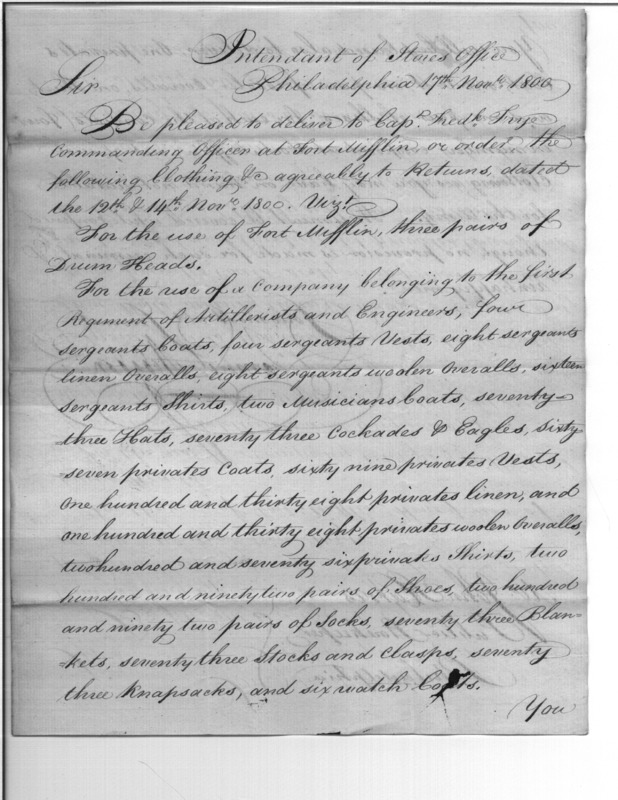 Intendant of Stores Office
Sir Philadelphia 17th. Novr. 1800
Be pleased to deliver to Capn. Fredk. Frye
Commanding Officer at Fort Mifflin, or order the
following Clothing &c agreeably to Returns, dated
the 12th. & 14th. Novr. 1800. Vizt.
For the use of Fort Mifflin, three pairs of
Drum Heads.
For the use of a Company belonging to the first
Regiment of Artillerists and Engineers, four
sergeants Coats, four sergeants Vests, eight sergeants
linen Overalls, eight sergeants woolen Overalls, sixteen
sergeants Shirts, two Musicians Coats, seventy
three Hats, seventy three Cockades & Eagles, sixty
=seven privates Coats, sixty nine privates Vests,
One hundred and thirty eight privates linen, and
one hundred and thirty eight privates woolen Overalls,
two hundred and seventy six privates Shirts, two
hundred and ninety two pairs of Shoes, two hundred
and ninety two pairs of Socks, seventy three Blan=
=kets, seventy three Stocks and Clasps, seventy
three Knapsacks, and six watch Coats.
You